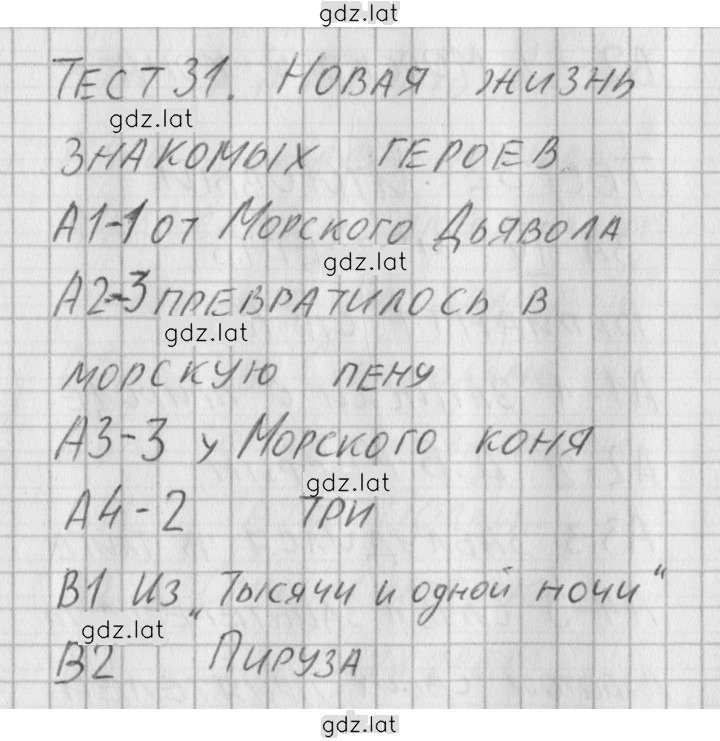 gdz.lat
ТЕСТ 31. НОВАЯ ЖИЗНЬ
gdz.lat
ЗНАКОМЫХ ГЕРОЕВ
А1-1 от МОРСКОГО ДЬЯВОЛА
gdz.lat
А2-3 ПРЕВРАТИЛОСЬ В
gdz.lat
МОРСКУЮ ПЕНУ
А3-3 у МОРСКОГО КОНЯ
gdz.lat
А4-2 ТРИ
В1 Из „Тысячи и одной ночи“
gdz.lat
В2 ПИРУЗА
gdz.lat